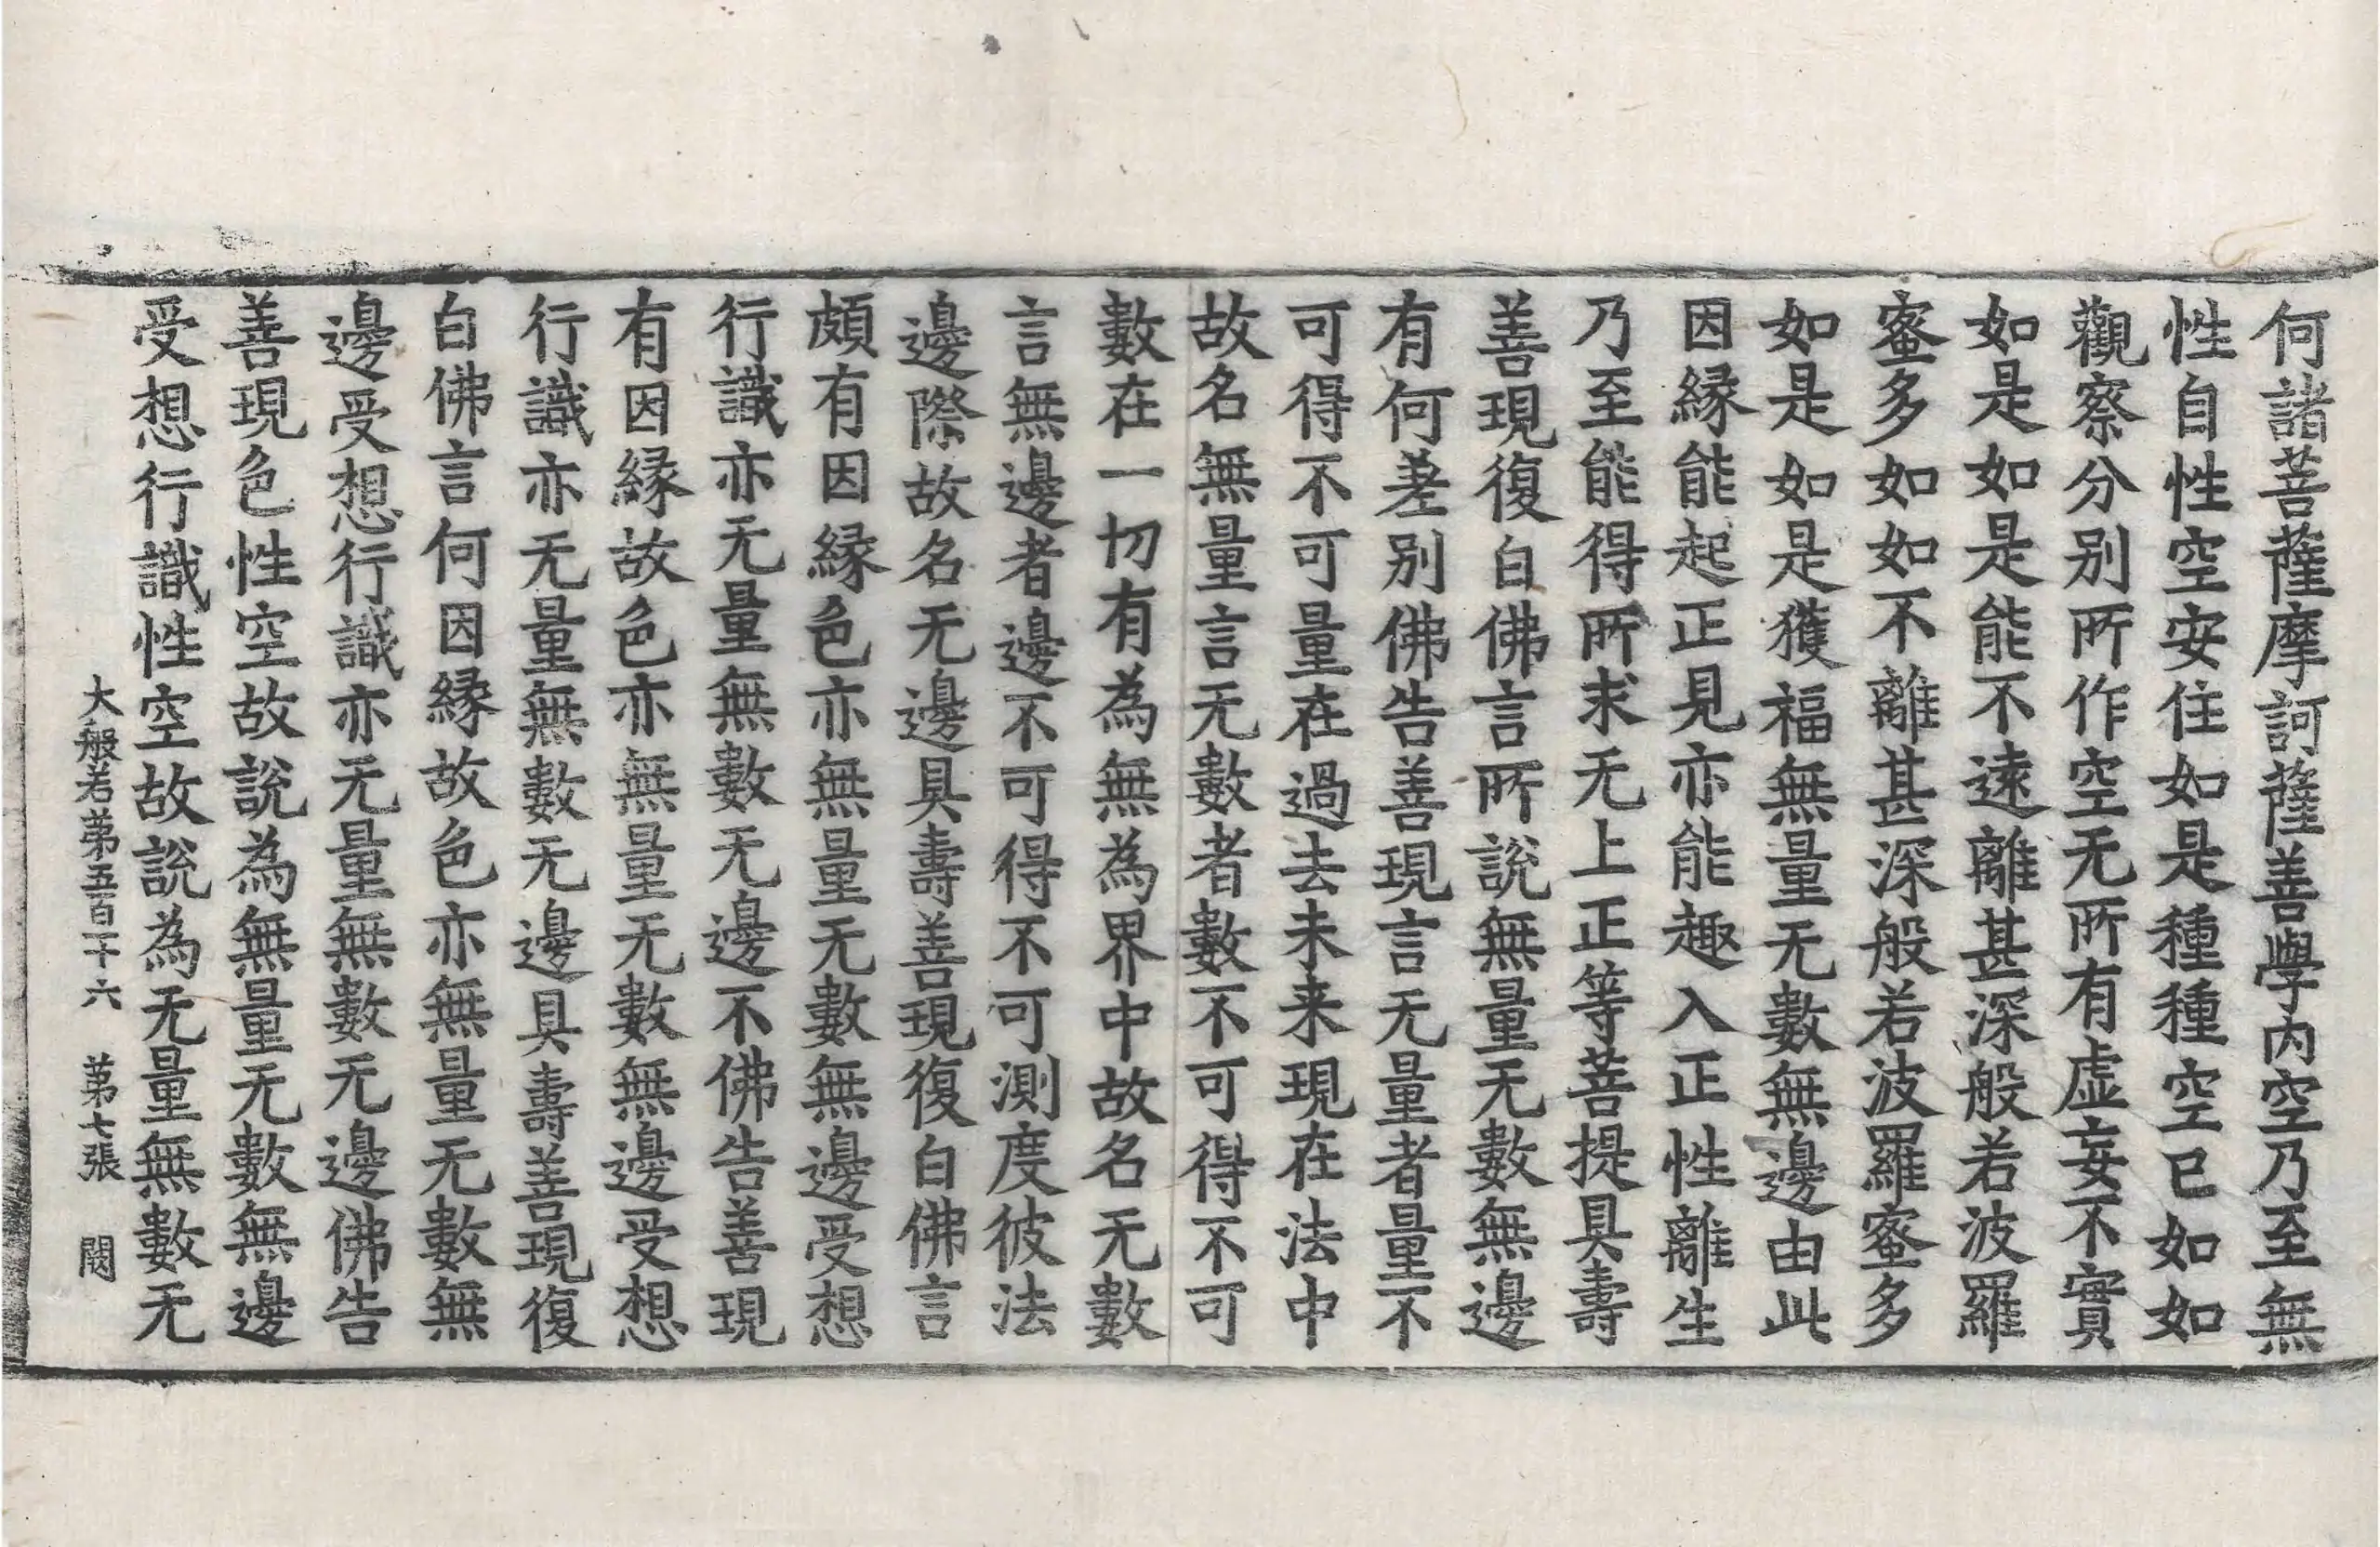 何諸菩薩摩訶薩善學內空乃至無
性自性空安住如是種種空已如如
觀察分別所作空无所有虛妄不實
如是如是能不遠離甚深般若波羅
蜜多如如不離甚深般若波羅蜜多
如是如是獲福無量无數無邊由此
因緣能起正見亦能趣入正性離生
乃至能得所求无上正等菩提具壽
善現復白佛言所說無量无數無邊
有何差別佛告善現言无量者量不
可得不可量在過去未来現在法中
故名無量言无數者數不可得不可
數在一切有為無為界中故名无數
言無邊者邊不可得不可測度彼法
邊際故名无邊具壽善現復白佛言
頗有因緣色亦無量无數無邊受想
行識亦无量無數无邊不佛告善現
有因緣故色亦無量无數無邊受想
行識亦无量無數无邊具壽善現復
白佛言何因緣故色亦無量无數無
邊受想行識亦无量無數无邊佛告
善現色性空故說為無量无數無邊
受想行識性空故說為无量無數无
大般若第五百卄六 第七張 闕